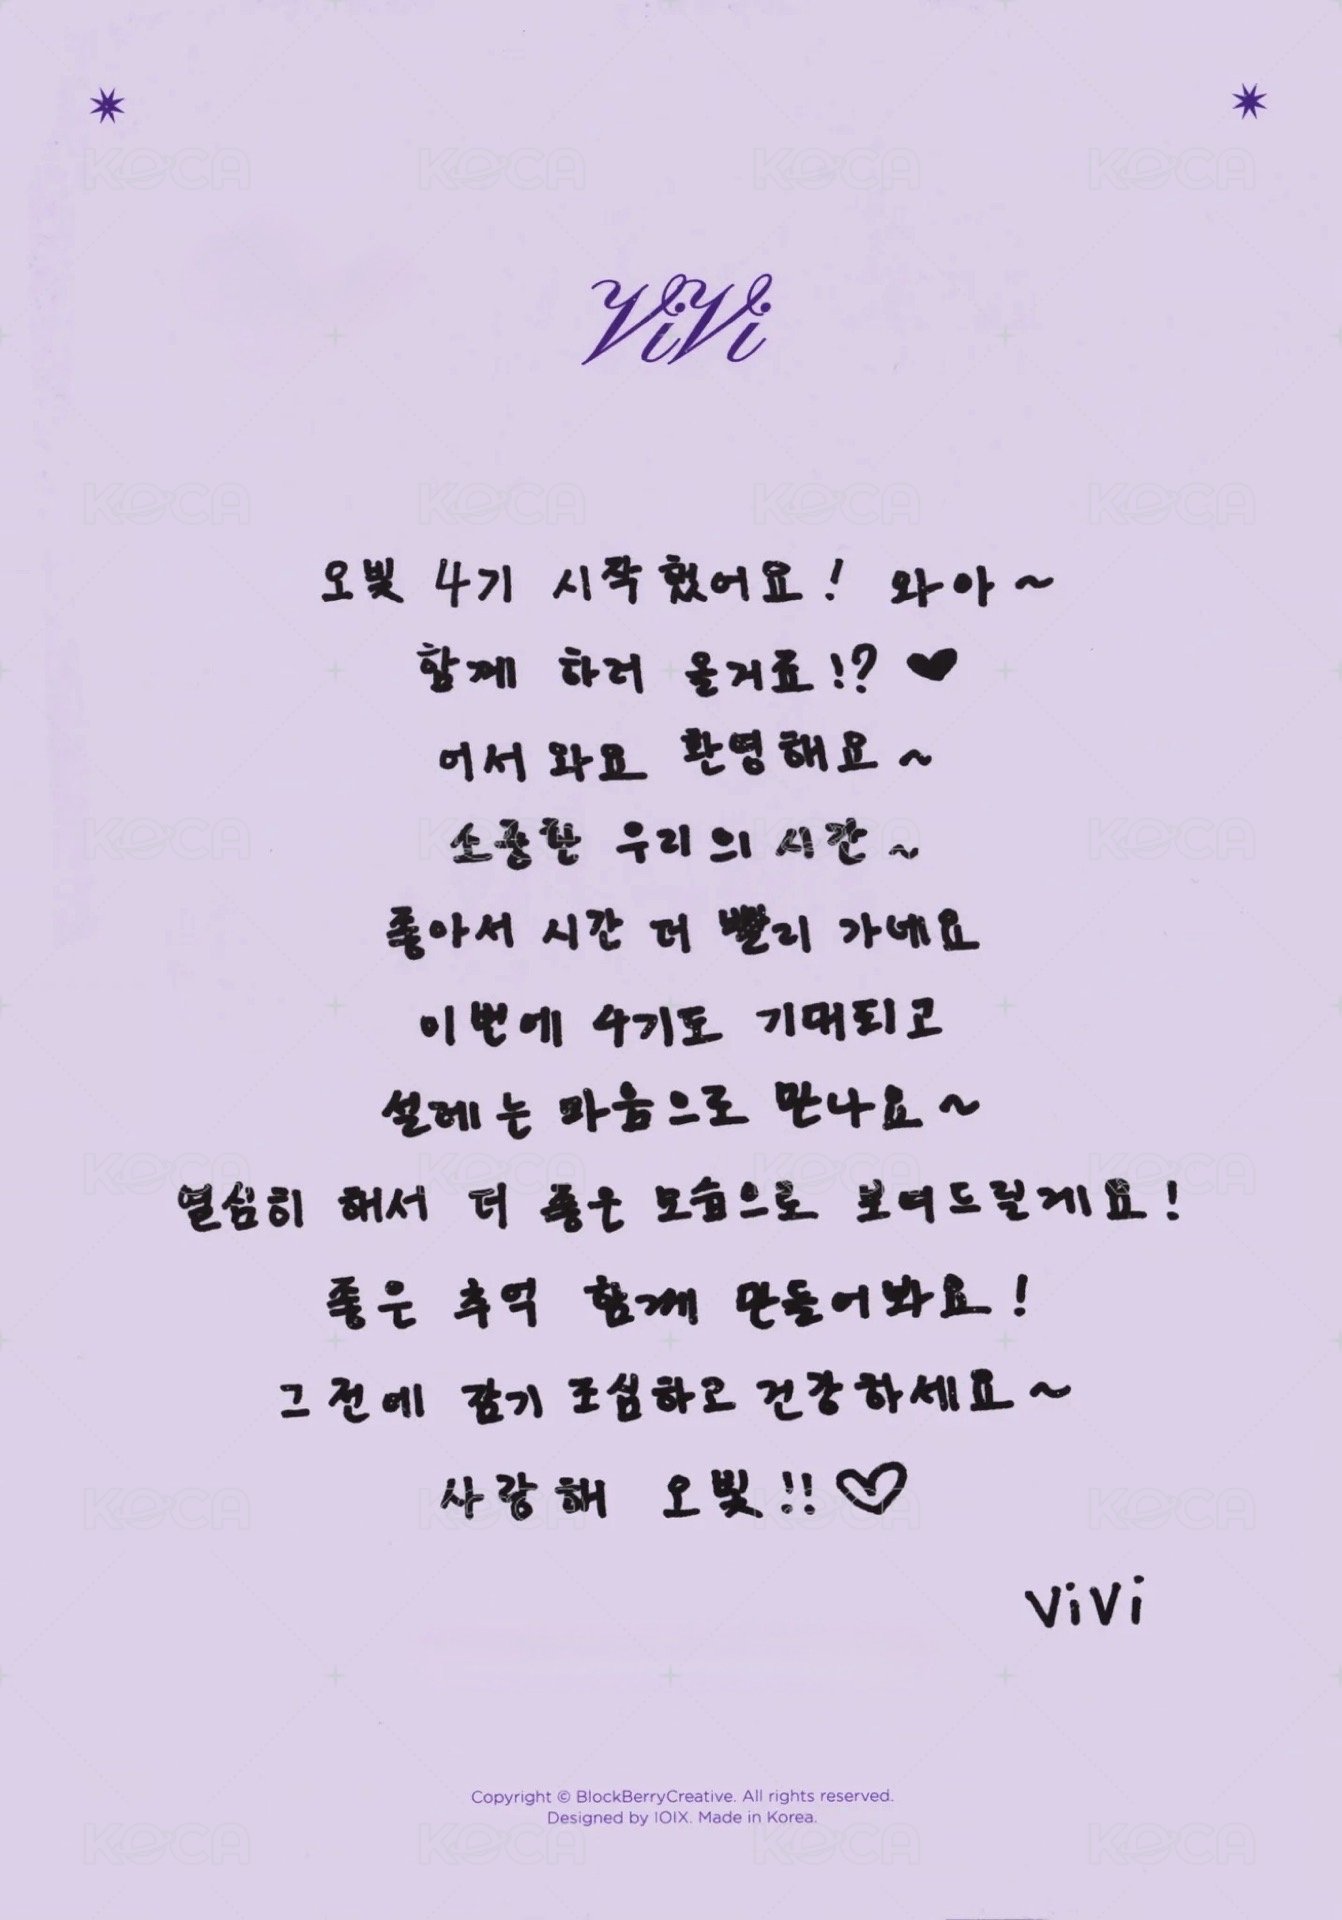 ViVi
오빛 4기 시작했어요! 와아~
함께 하러 올거죠!? ♥
어서와요 환영해요~
소중한 우리의 시간~
좋아서 시간 더 빨리 가네요
이번에 4기도 기대되고
설레는 마음으로 만나요~
열심히 해서 더 좋은 모습으로 보여드릴게요!
좋은 추억 함께 만들어봐요!
그전에 감기 조심하고 건강하세요~
사랑해 오빛!! ♡
ViVi
Copyright © BlockBerryCreative. All rights reserved.
Designed by IOIX. Made in Korea.
KOCA